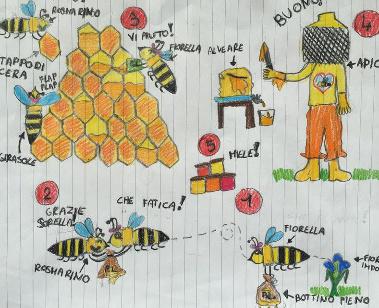 ROSMARINO!
3
VI AIUTO!
FIORELLA
TAPPO DI
CERA
FLAP
FLAP
GIRASOLE
BUONO!
4
ALVEARE
5
MIELE!
2
GRAZIE
SORELLA!
CHE FATICA!
ROSMARINO
1
FIORELLA
BOTTINO PIENO